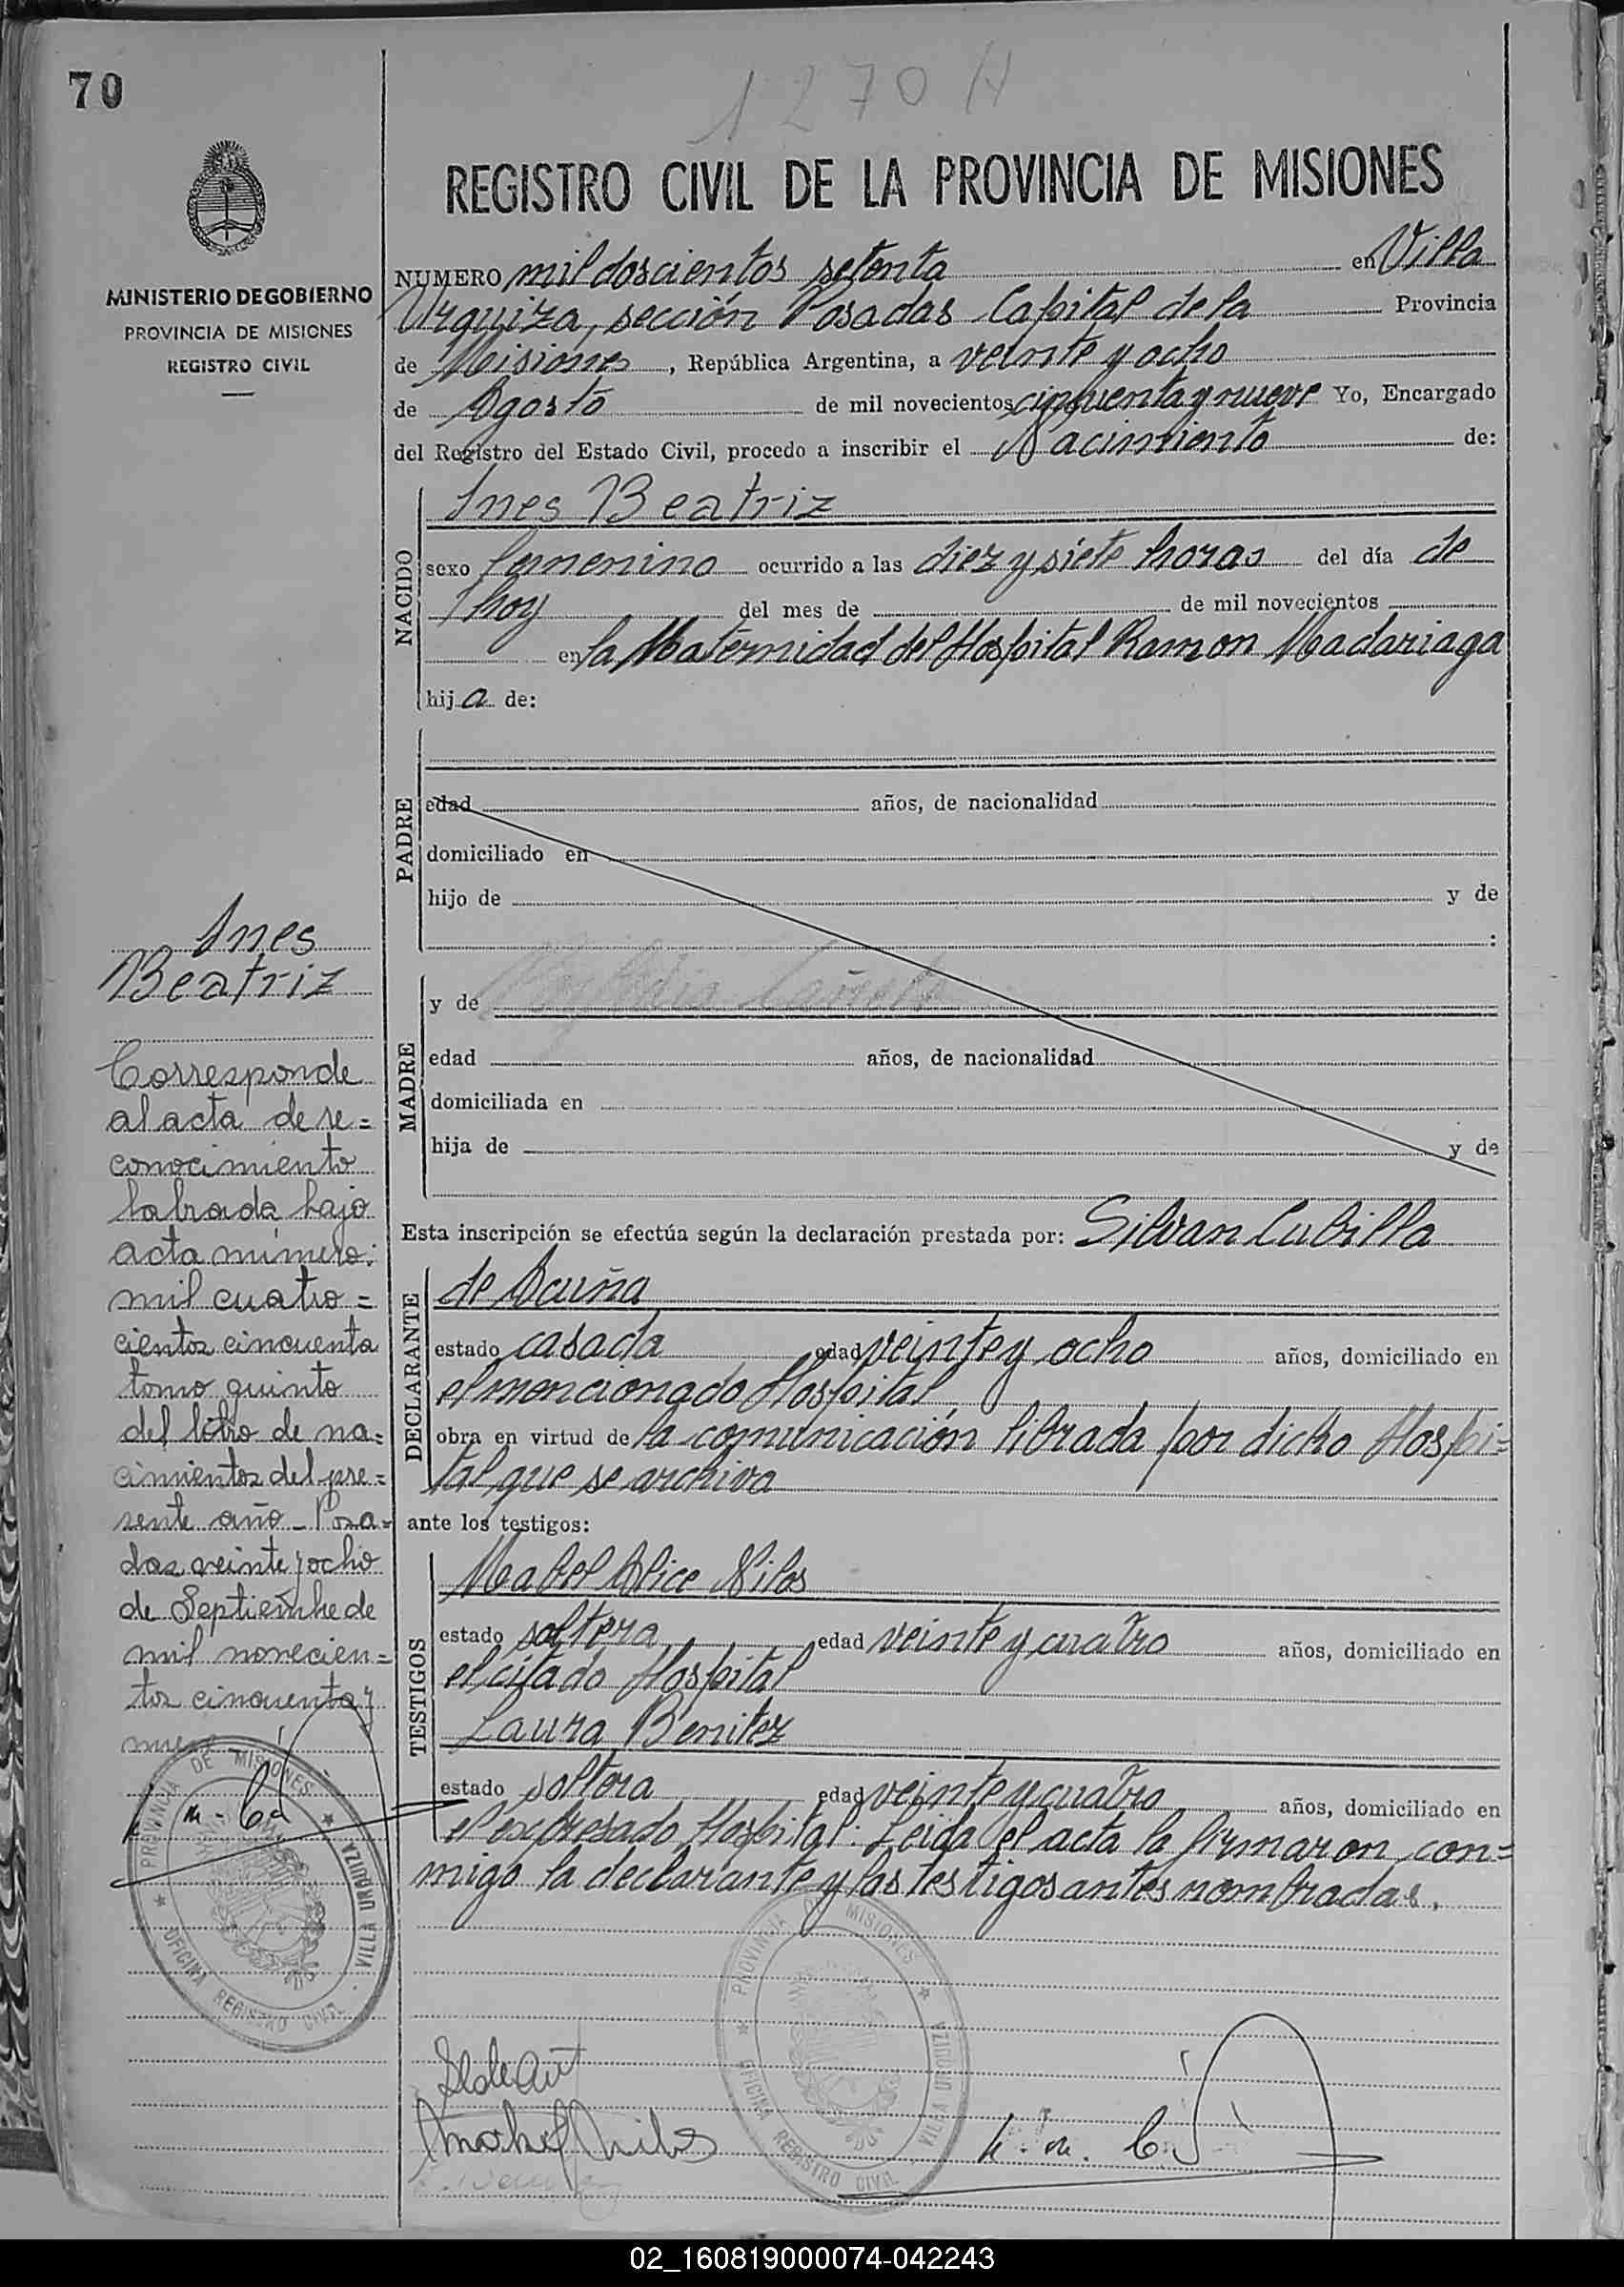 70
1270 H
REGISTRO CIVIL DE LA PROVINCIA DE MISIONES
MINISTERIO DE GOBIERNO
PROVINCIA DE MISIONES
REGISTRO CIVIL
NUMERO mil doscientos setenta en Villa
Urquiza, sección Posadas Capital de la Provincia
de Misiones, República Argentina, a veinte y ocho
de Agosto de mil novecientos cincuenta y nueve Yo, Encargado
del Registro del Estado Civil, procedo a inscribir el Nacimiento de:
NACIDO
Ines Beatriz
sexo femenino ocurrido a las diez y siete horas del día de
hoy del mes de de mil novecientos
en la Maternidad del Hospital Ramon Madariaga
hija de:
PADRE
edad años, de nacionalidad
domiciliado en
hijo de y de
:
MADRE
y de
edad años, de nacionalidad
domiciliada en
hija de y de
Esta inscripción se efectúa según la declaración prestada por: Silvan Cubilla
DECLARANTE
de Acuña
estado casada edad veinte y ocho años, domiciliado en
el mencionado Hospital
obra en virtud de la comunicación librada por dicho Hospi=
tal que se archiva
ante los testigos:
TESTIGOS
Mabel Alice Silos
estado soltera edad veinte y cuatro años, domiciliado en
el citado Hospital
Laura Benitez
estado soltera edad veinte y cuatro años, domiciliado en
el expresado Hospital. Leida el acta la firmaron con=
migo la declarante y las testigos antes nombradas.
Ines
Beatriz
Corresponde
al acta de re=
conocimiento
labrada bajo
acta número:
mil cuatro=
cientos cincuenta
tomo quinto
del libro de na=
cimientos del pre=
sente año - Posa=
das veinte y ocho
de Septiembre de
mil novecien=
tos cincuenta y
nueve
PROVINCIA DE MISIONES
VILLA URQUIZA
OFICINA REGISTRO CIVIL
PROVINCIA DE MISIONES
VILLA URQUIZA
OFICINA REGISTRO CIVIL
02_160819000074-042243